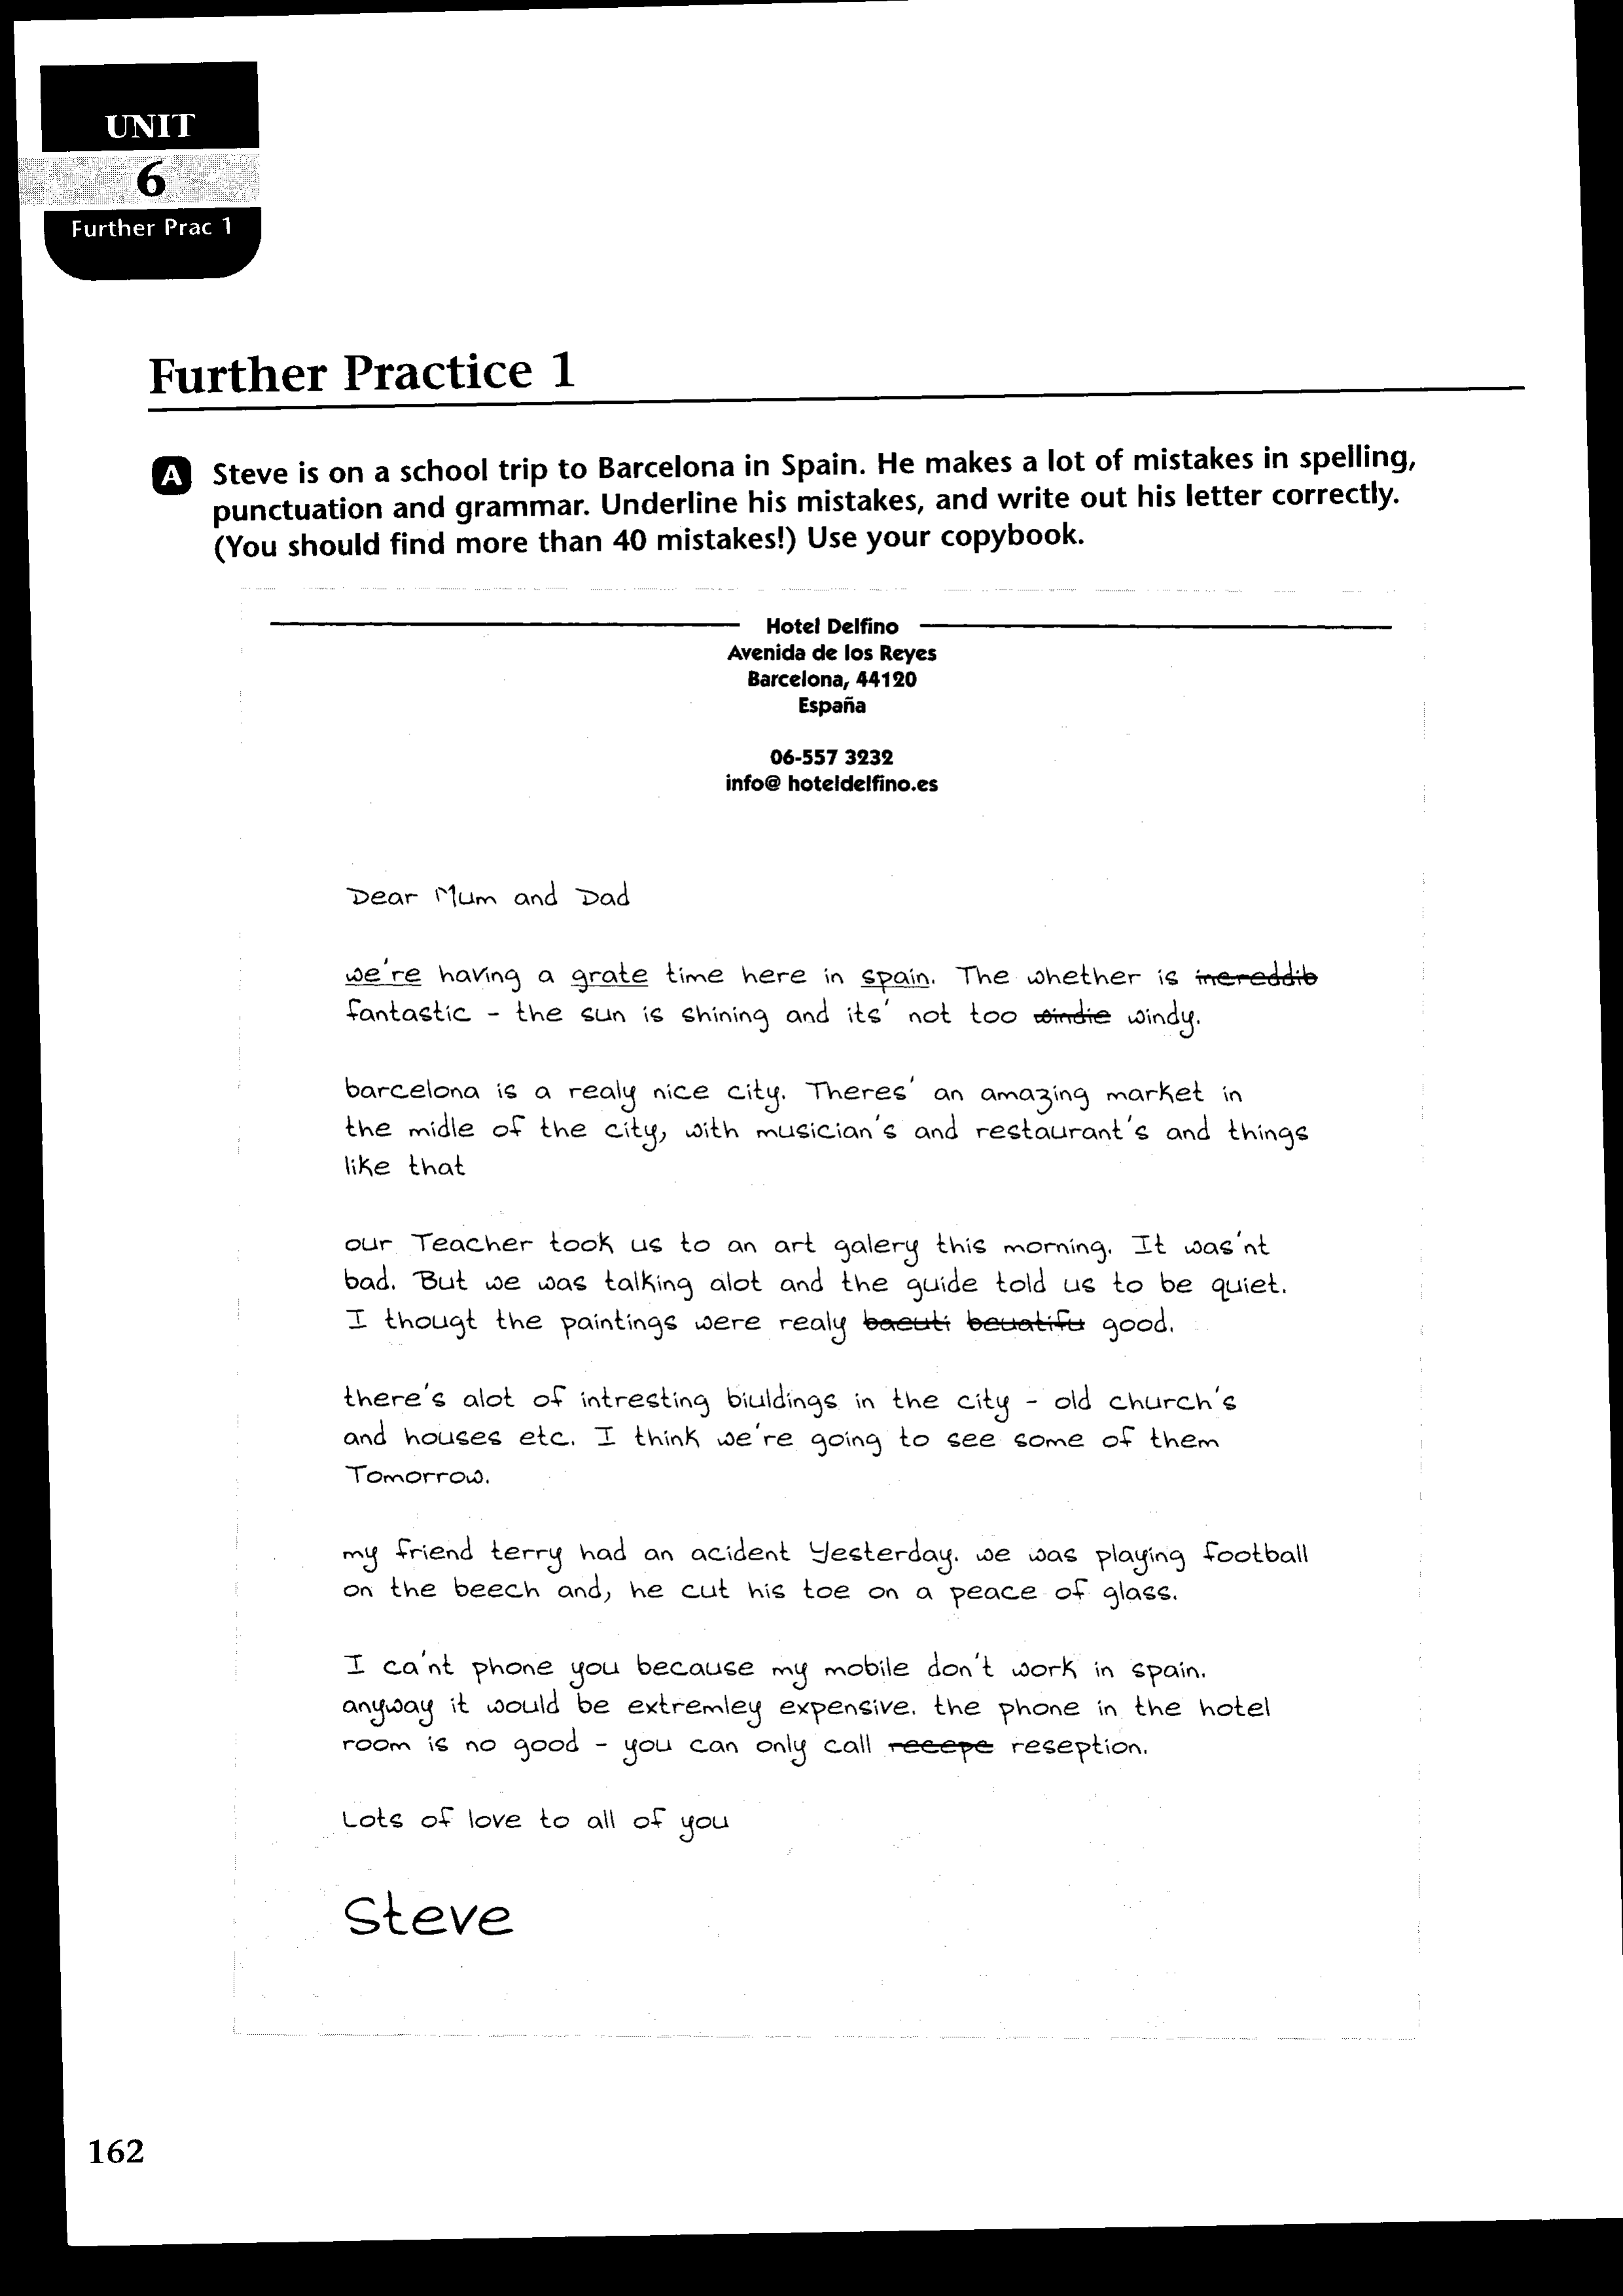 UNIT
6
Further Prac 1
Further Practice 1
A Steve is on a school trip to Barcelona in Spain. He makes a lot of mistakes in spelling,
punctuation and grammar. Underline his mistakes, and write out his letter correctly.
(You should find more than 40 mistakes!) Use your copybook.
Hotel Delfino
Avenida de los Reyes
Barcelona, 44120
España
06-557 3232
info@ hoteldelfino.es
Dear Mum and Dad
we're having a grate time here in spain. The whether is increddib
fantastic - the sun is shining and its' not too windie windy.
barcelona is a realy nice city. Theres' an amazing market in
the midle of the city, with musician's and restaurant's and things
like that
our Teacher took us to an art galery this morning. It was'nt
bad. But we was talking alot and the guide told us to be quiet.
I thougt the paintings were realy baeuti beuatifu good.
there's alot of intresting biuldings in the city - old church's
and houses etc. I think we're going to see some of them
Tomorrow.
my friend terry had an acident Yesterday. we was playing football
on the beech and, he cut his toe on a peace of glass.
I ca'nt phone you because my mobile don't work in spain.
anyway it would be extremley expensive. the phone in the hotel
room is no good - you can only call recepc reseption.
Lots of love to all of you
Steve
162